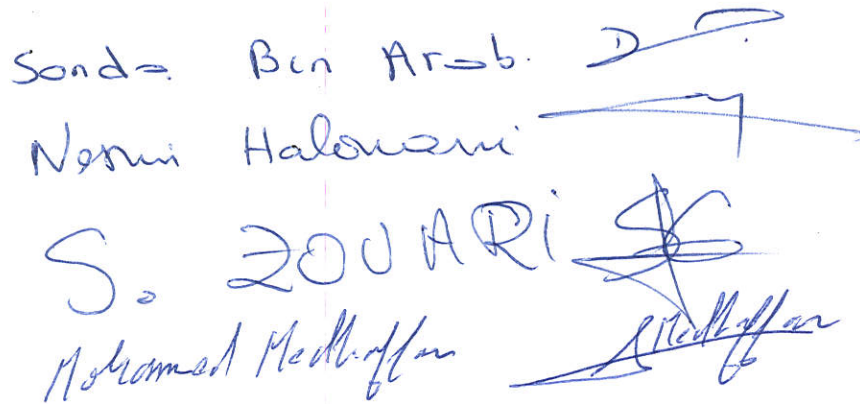 Sonda Ben Arab.
Nesrin Halouani
S. ZOUARI
Mohamed Medhaffar Medhaffar